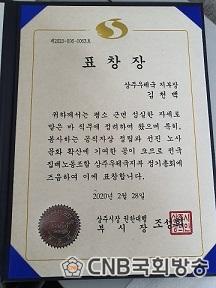 표 창 장
상주우체국 지부장
김 천 백
위하께서는 평소 근면 성실한 자세로
맡은 바 직무에 정려하여 왔으며 특히,
봉사하는 공직자상 정립과 선진 노사
문화 확산에 기여한 공이 크므로 전국
집배노동조합 상주우체국지부 정기총회에
즈음하여 이에 표창합니다.
2020년 2월 28일
상주시장 권한대행
부 시 장 조 성
CNB국회방송